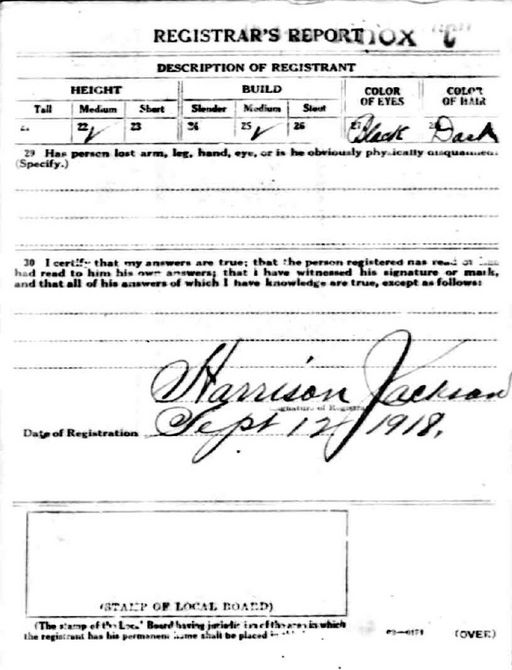 REGISTRAR'S REPORT
DESCRIPTION OF REGISTRANT
HEIGHT BUILD COLOR OF EYES COLOR OF HAIR
Tall Medium Short Slender Medium Stout
21 22 ✓ 23 24 25 ✓ 26 27 Black 28 Dark
29 Has person lost arm, leg, hand, eye, or is he obviously physically disqualified?
(Specify.)
30 I certify that my answers are true; that the person registered has read or has
had read to him his own answers; that I have witnessed his signature or mark,
and that all of his answers of which I have knowledge are true, except as follows:
Harrison Jackson
Signature of Registrar
Date of Registration Sept 12, 1918.
(STAMP OF LOCAL BOARD)
(The stamp of the Local Board having jurisdiction of the area in which
the registrant has his permanent home shall be placed in this
(OVER)